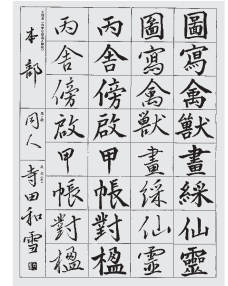 圖寫禽獸畫綵仙靈
圖寫禽獸畫綵仙靈
丙舍傍啟甲帳對楹
丙舍傍啟甲帳對楹
本部
同人
寺田和雪